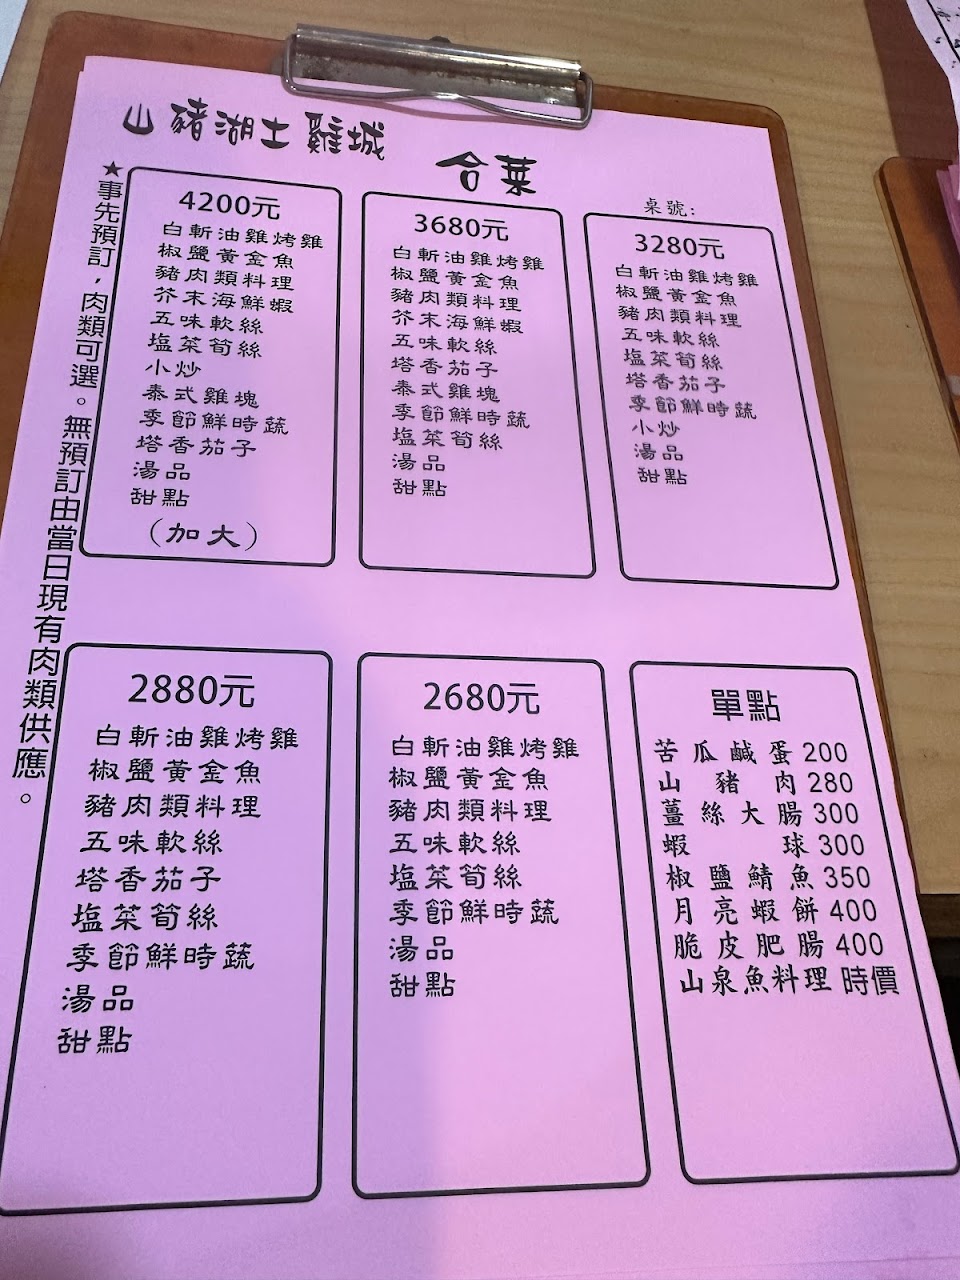 山豬湖土雞城
合菜
桌號:
★事先預訂，肉類可選。無預訂由當日現有肉類供應。
4200元
白斬油雞烤雞
椒鹽黃金魚
豬肉類料理
芥末海鮮蝦
五味軟絲
塩菜筍絲
小炒
泰式雞塊
季節鮮時蔬
塔香茄子
湯品
甜點
(加大)
3680元
白斬油雞烤雞
椒鹽黃金魚
豬肉類料理
芥末海鮮蝦
五味軟絲
塔香茄子
泰式雞塊
季節鮮時蔬
塩菜筍絲
湯品
甜點
3280元
白斬油雞烤雞
椒鹽黃金魚
豬肉類料理
五味軟絲
塩菜筍絲
塔香茄子
季節鮮時蔬
小炒
湯品
甜點
2880元
白斬油雞烤雞
椒鹽黃金魚
豬肉類料理
五味軟絲
塔香茄子
塩菜筍絲
季節鮮時蔬
湯品
甜點
2680元
白斬油雞烤雞
椒鹽黃金魚
豬肉類料理
五味軟絲
塩菜筍絲
季節鮮時蔬
湯品
甜點
單點
苦瓜鹹蛋 200
山豬肉 280
薑絲大腸 300
蝦球 300
椒鹽鯖魚 350
月亮蝦餅 400
脆皮肥腸 400
山泉魚料理 時價